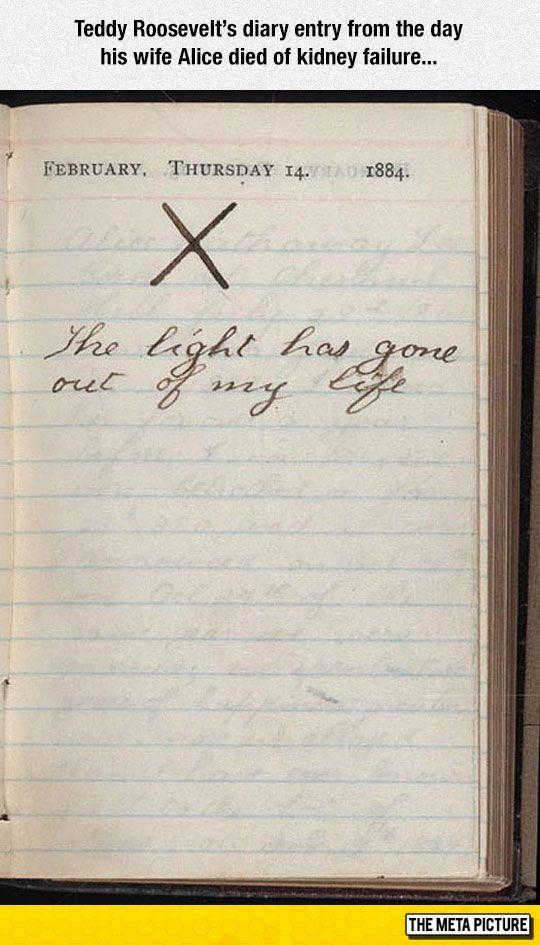 Teddy Roosevelt's diary entry from the day
his wife Alice died of kidney failure...
FEBRUARY, THURSDAY 14. 1884.
X
The light has gone
out of my life
THE META PICTURE